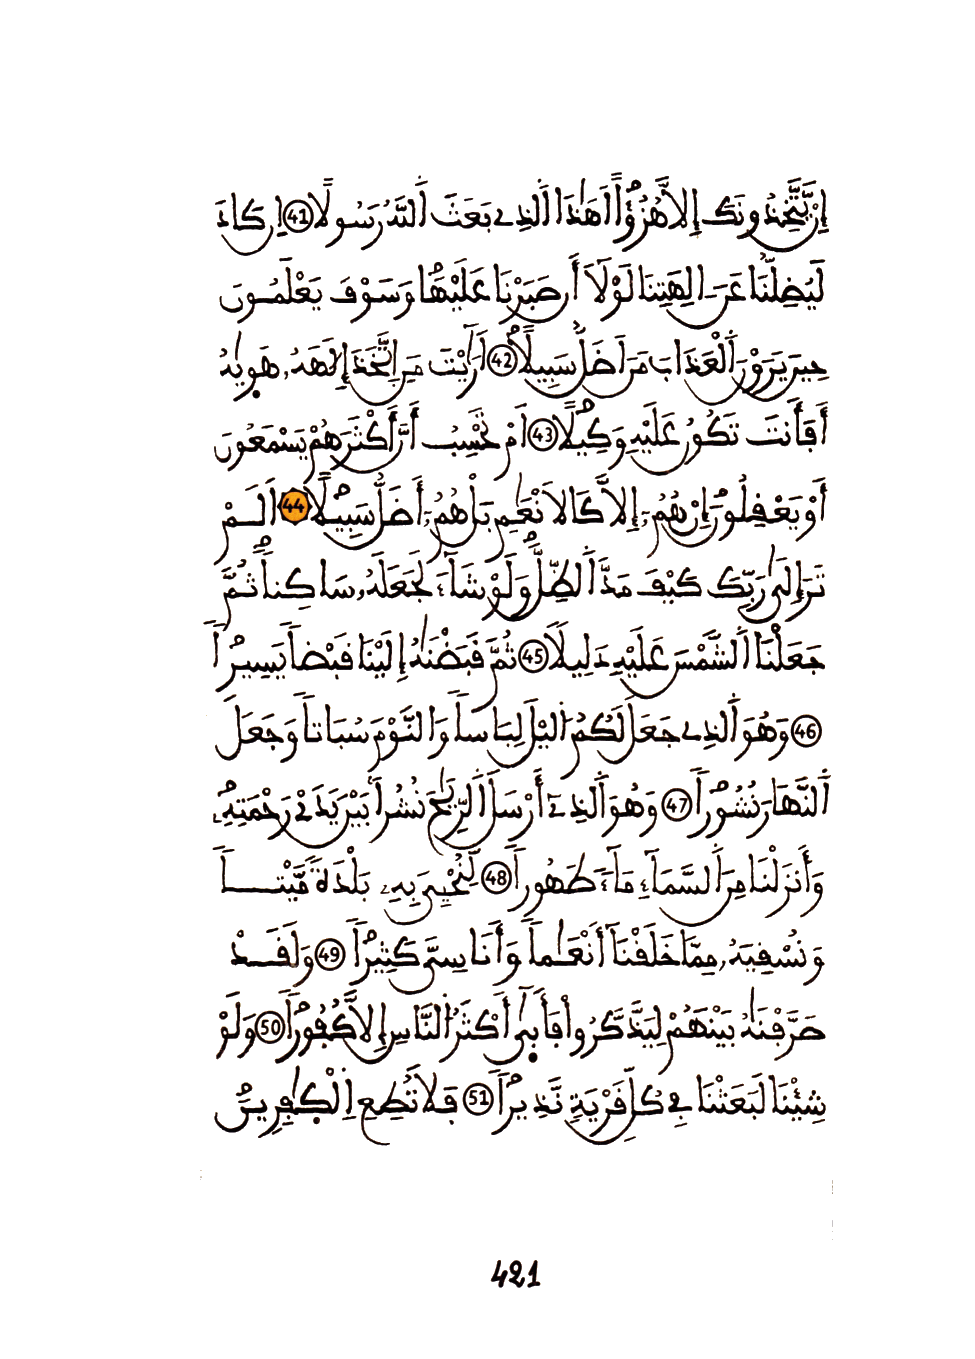 إِنْ يَّتَّخِذُونَكَ إِلاَّ هُزُؤاً اَهَٰذَا اَ۬لذِے بَعَثَ اَ۬للَّهُ رَسُولًا 41 إِن كَادَ
لَيُضِلُّنَا عَنَ اٰلِهَتِنَا لَوْلَآ أَن صَبَرْنَا عَلَيْهَا وَسَوْفَ يَعْلَمُونَ
حِينَ يَرَوْنَ اَ۬لْعَذَابَ مَنَ اَضَلُّ سَبِيلًا 42 اَرَٰٓيْتَ مَنِ اِ۪تَّخَذَ إِلَٰهَهُۥ هَوۭيٰهُ
أَفَأَنتَ تَكُونُ عَلَيْهِ وَكِيلًا 43 اَمْ تَحْسِبُ أَنَّ أَكْثَرَهُمْ يَسْمَعُونَ
أَوْ يَعْقِلُونَ إِنْ هُمُۥٓ إِلاَّ كَالَانْعَٰمِ بَلْ هُمُۥٓ أَضَلُّ سَبِيلًا 44 اَلَمْ
تَرَ إِلَىٰ رَبِّكَ كَيْفَ مَدَّ اَ۬لظِّلَّ وَلَوْ شَآءَ لَجَعَلَهُۥ سَاكِناً ثُمَّ
جَعَلْنَا اَ۬لشَّمْسَ عَلَيْهِ دَلِيلًا 45 ثُمَّ قَبَضْنَٰهُ إِلَيْنَا قَبْضاً يَسِيراً
46 وَهُوَ اَ۬لذِے جَعَلَ لَكُمُ اُ۬ليْلَ لِبَاساً وَالنَّوْمَ سُبَاتاً وَجَعَلَ
اَ۬لنَّهَارَ نُشُوراً 47 وَهُوَ اَ۬لذِےٓ أَرْسَلَ اَ۬لرِّيَٰحَ نُشُراً بَيْنَ يَدَےْ رَحْمَتِهِۦ
وَأَنزَلْنَا مِنَ اَ۬لسَّمَآءِ مَآءً طَهُوراً 48 لِّنُحْيِۦَ بِهِۦ بَلْدَةً مَّيْتاً
وَنُسْقِيَهُۥ مِمَّا خَلَقْنَآ أَنْعَٰماً وَأَنَاسِيَّ كَثِيراً 49 وَلَقَدْ
صَرَّفْنَٰهُ بَيْنَهُمْ لِيَذَّكَّرُواْ فَأَبۭيٰٓ أَكْثَرُ اُ۬لنَّاسِ إِلاَّ كُفُوراً 50 وَلَوْ
شِئْنَا لَبَعَثْنَا فِے كُلِّ قَرْيَةٍ نَّذِيراً 51 فَلَا تُطِعِ اِ۬لْكٰ۪فِرِينَ
421